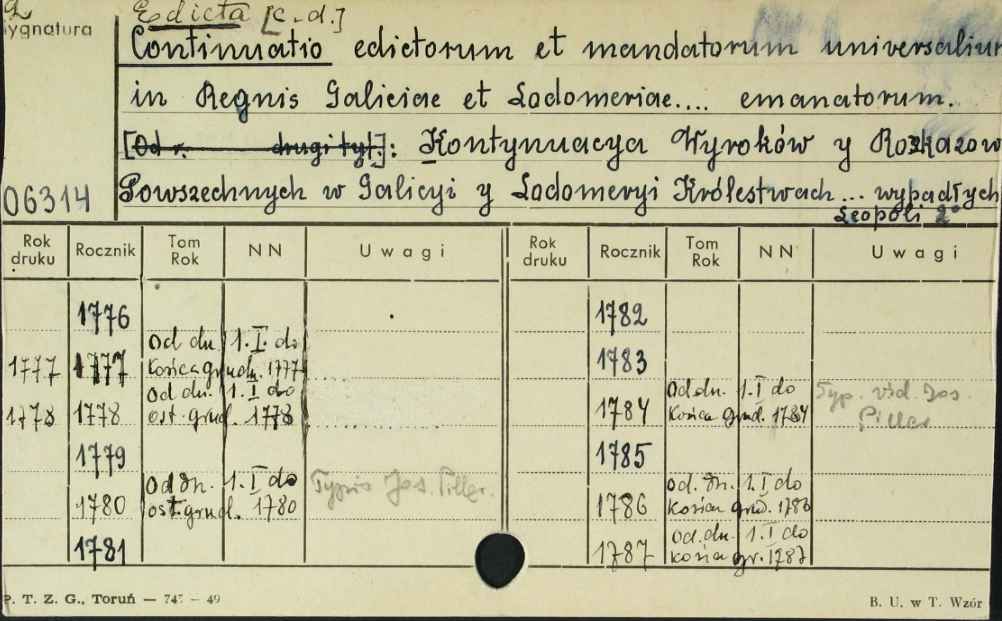 Edicta [c.d.]
Sygnatura
Continuatio edictorum et mandatorum universalium
in Regnis Galiciae et Lodomeriae.... emanatorum.
[Od r. drugi tyt.]: Kontynuacya Wyroków y Rozkazow
06314
Powszechnych w Galicyi y Lodomeryi Królestwach ... wypadłych
Leopoli 2°
Rok druku Rocznik Tom Rok NN Uwagi Rok druku Rocznik Tom Rok NN Uwagi
1776 1782
1777 1777 Od dn. 1.I. do końca grudn. 1777 1783
1778 1778 Od dn. 1.I do ost. grud. 1778 1784 Od dn. 1.I do końca grud. 1784 Typ. vid. Jos. Piller
1779 1785
1780 Od dn. 1.I do ost. grud. 1780 Typis Jos. Piller. 1786 Od. dn. 1.I do końca grud. 1786
1781 1787 Od. dn. 1.I do końca gr. 1787
P. T. Z. G., Toruń — 745 — 49 B. U. w T. Wzór